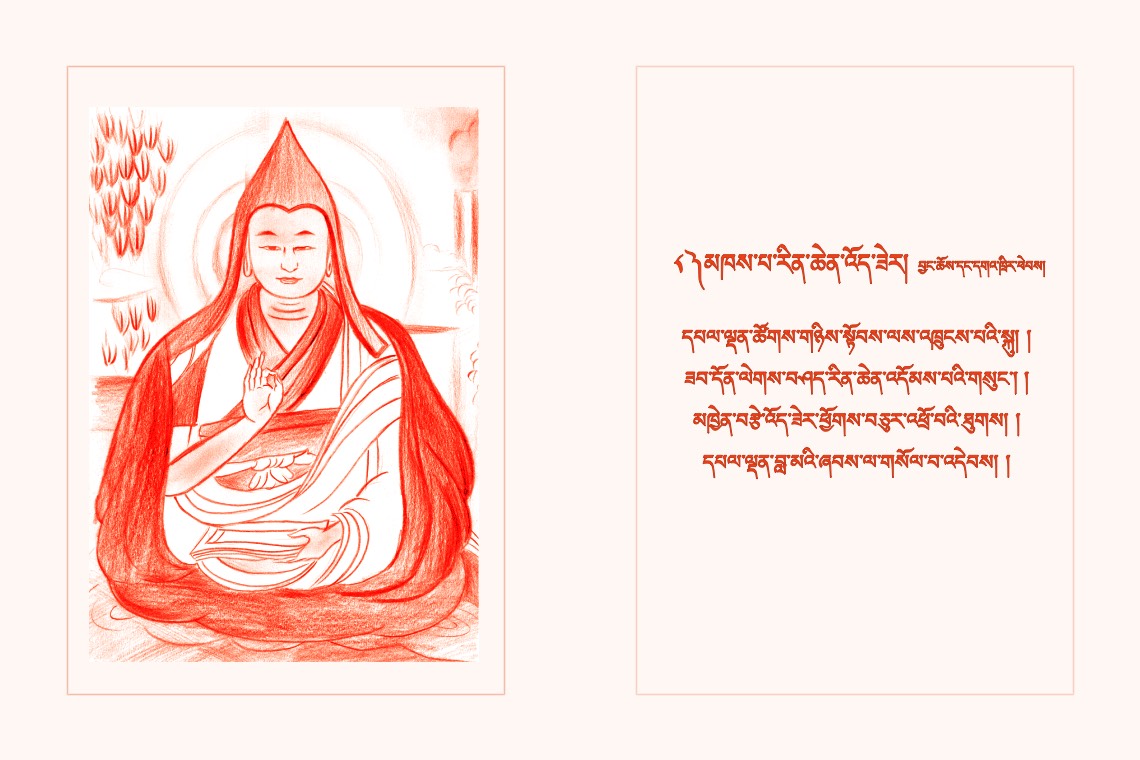 ༼༽མཁས་པ་རིན་ཆེན་འོད་ཟེར། བྱང་ཆོས་དང་དགའ་ཁྲིར་ཕེབས།
དཔལ་ལྡན་ཚོགས་གཉིས་སྟོབས་ལས་འཁྲུངས་པའི་སྐུ། །
ཟབ་དོན་ལེགས་བཤད་རིན་ཆེན་འདོམས་པའི་གསུང་། །
མཁྱེན་བརྩེ་འོད་ཟེར་ཕྱོགས་བཅུར་འཕྲོ་བའི་ཐུགས། །
དཔལ་ལྡན་བླ་མའི་ཞབས་ལ་གསོལ་བ་འདེབས། །